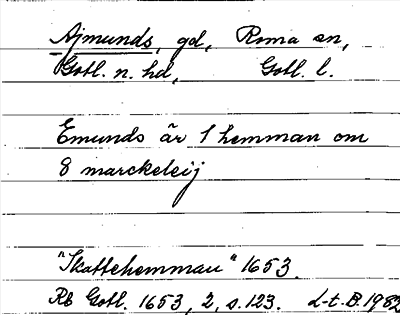 Ajmunds, gd, Roma sn,
Gotl. n. hd, Gotl. l.
Emunds är 1 hemman om
8 marckeleij
"Skattehemman" 1653.
RB Gotl. 1653, 2, s. 123. L-t. B. 1982